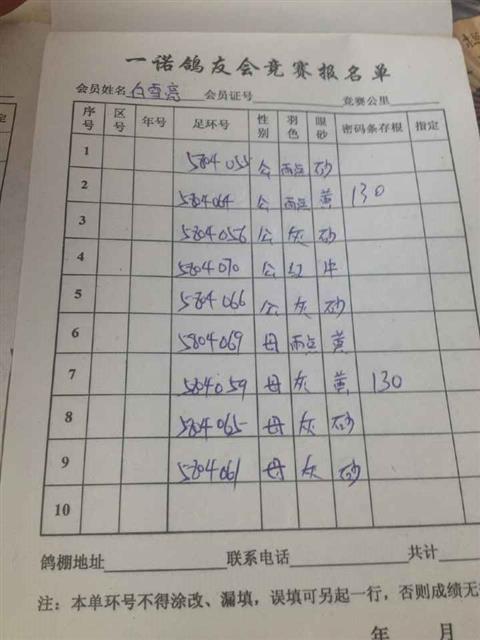 一诺鸽友会竞赛报名单
会员姓名 白雪亮 会员证号 竞赛公里
序号 区号 年号 足环号 性别 羽色 眼砂 密码条存根 指定
1 5804055 公 雨点 砂
2 5804064 公 雨点 黄 130
3 5804056 公 灰 砂
4 5804070 公 红 牛
5 5804066 公 灰 砂
6 5804069 母 雨点 黄
7 5804059 母 灰 黄 130
8 5804065 母 灰 砂
9 5804061 母 灰 砂
10
鸽棚地址 联系电话 共计
注：本单环号不得涂改、漏填，误填可另起一行，否则成绩无
年 月